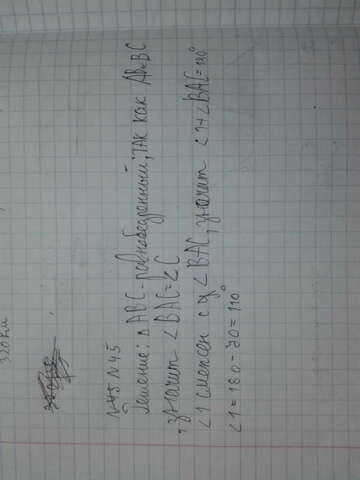 320км
N45 N45
Решение: △ABC - равнобедренный, так как AB=BC
, значит ∠BAC=∠C
∠1 смежен с ∠BAC, значит ∠1+∠BAC=180°
∠1=180-70=110°